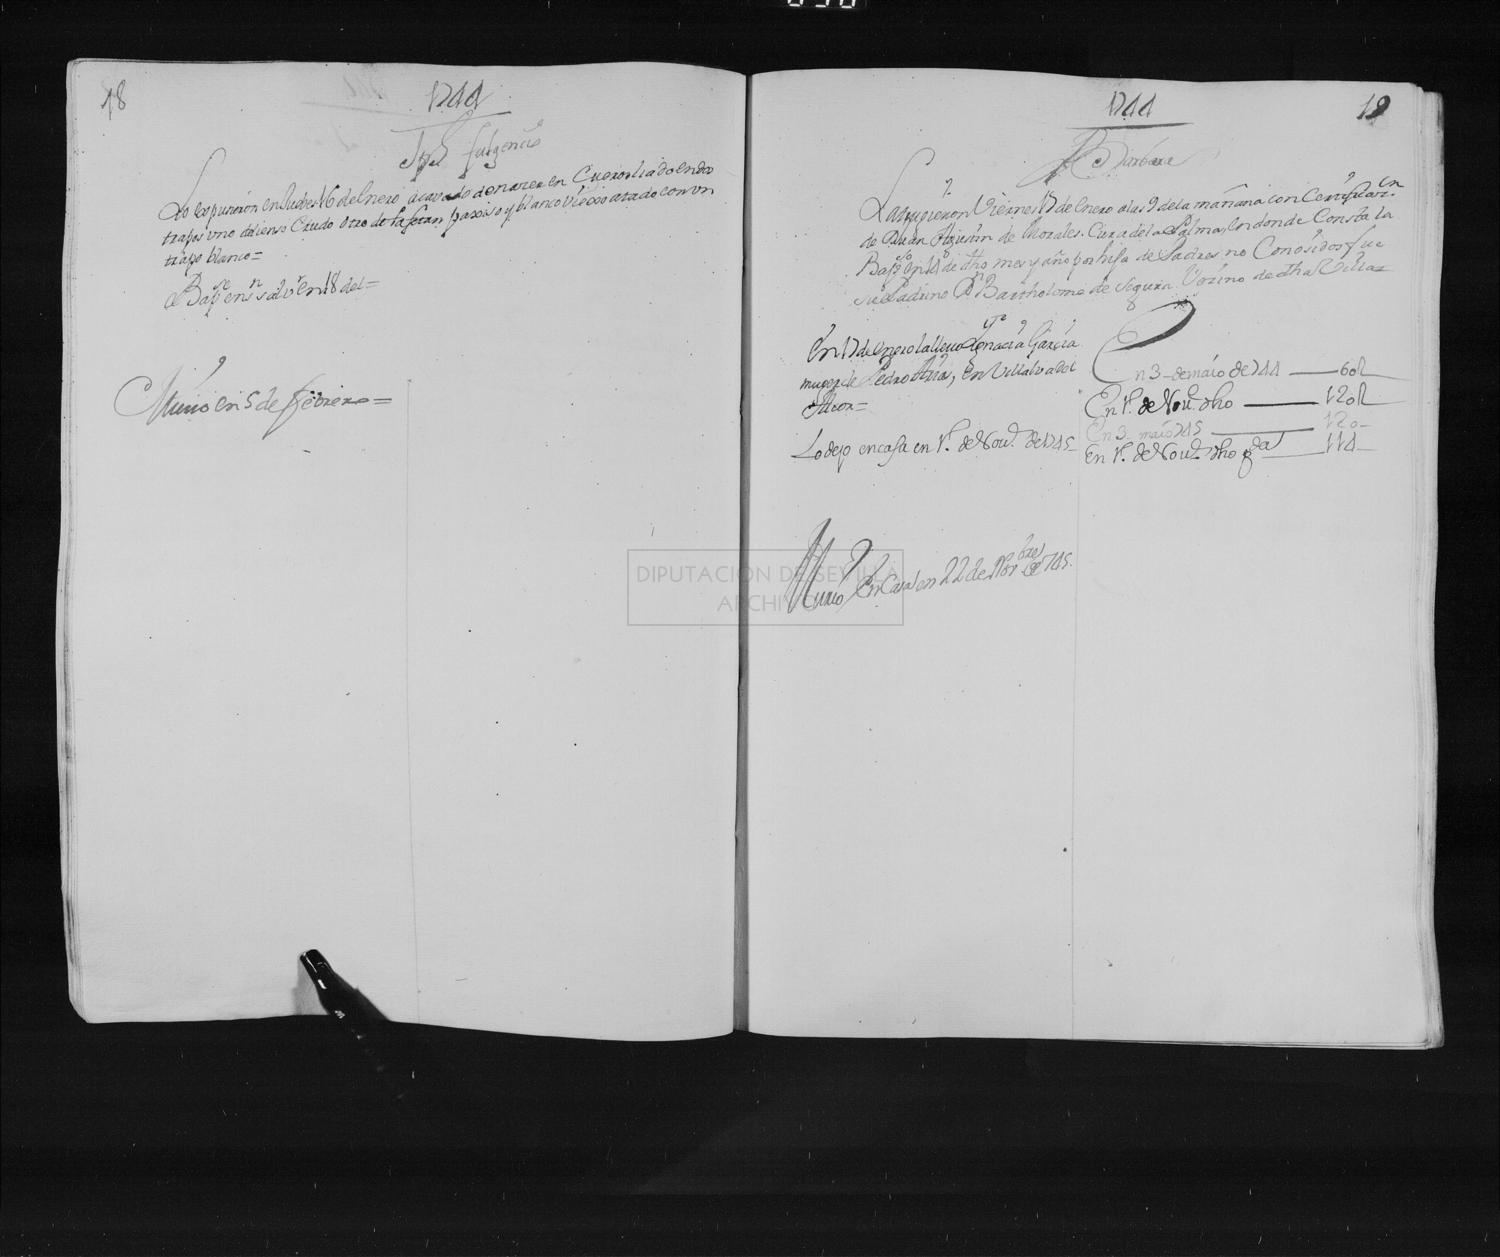 18
1744
Fulgencio
Lo expusieron en Jueves 16 de Enero acavado de nazer en Cueros liado en dos
trapos uno de lienso Crudo otro de tafetan paxiso y blanco Viexo atado con un
trapo blanco=
Bapse en Sn Salvr en 18 del=
Murio en 5 de febrero=
1744
19
Barbara
La trugeron Viernes 17 de Enero a las 9 de la mañana con Certificacin
de Dn Juan Agustin de Morales. Cura de la Palma, en donde Consta la
Bapso en 14 de dho mes y año por hija de Padres no Conosidos fue
su Padrino Dn Bartholome de Segura Vezino de dha Villa=
En 17 de enero la llevo Ignacia Garcia
muger de Pedro Arias, en Villalva del
Alcor=
En 3 de maio de 744 — 60 R
En 1º. de Nove. dho — 120 R
En 3 maio 745 — 120
Lo dejo en casa en 1º. de Nove. de 1745
En 1º. de Nove. dho — 114
Murio En Casa en 22 de Novbre de 745.
DIPUTACION DE SEVILLA
ARCHIVO